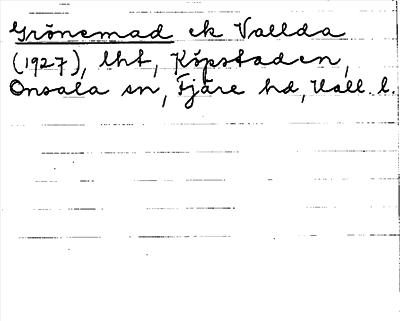 Grönemad ek Vallda
(1927), lht, Köpstaden,
Onsala sn, Fjäre hd, Hall. l.